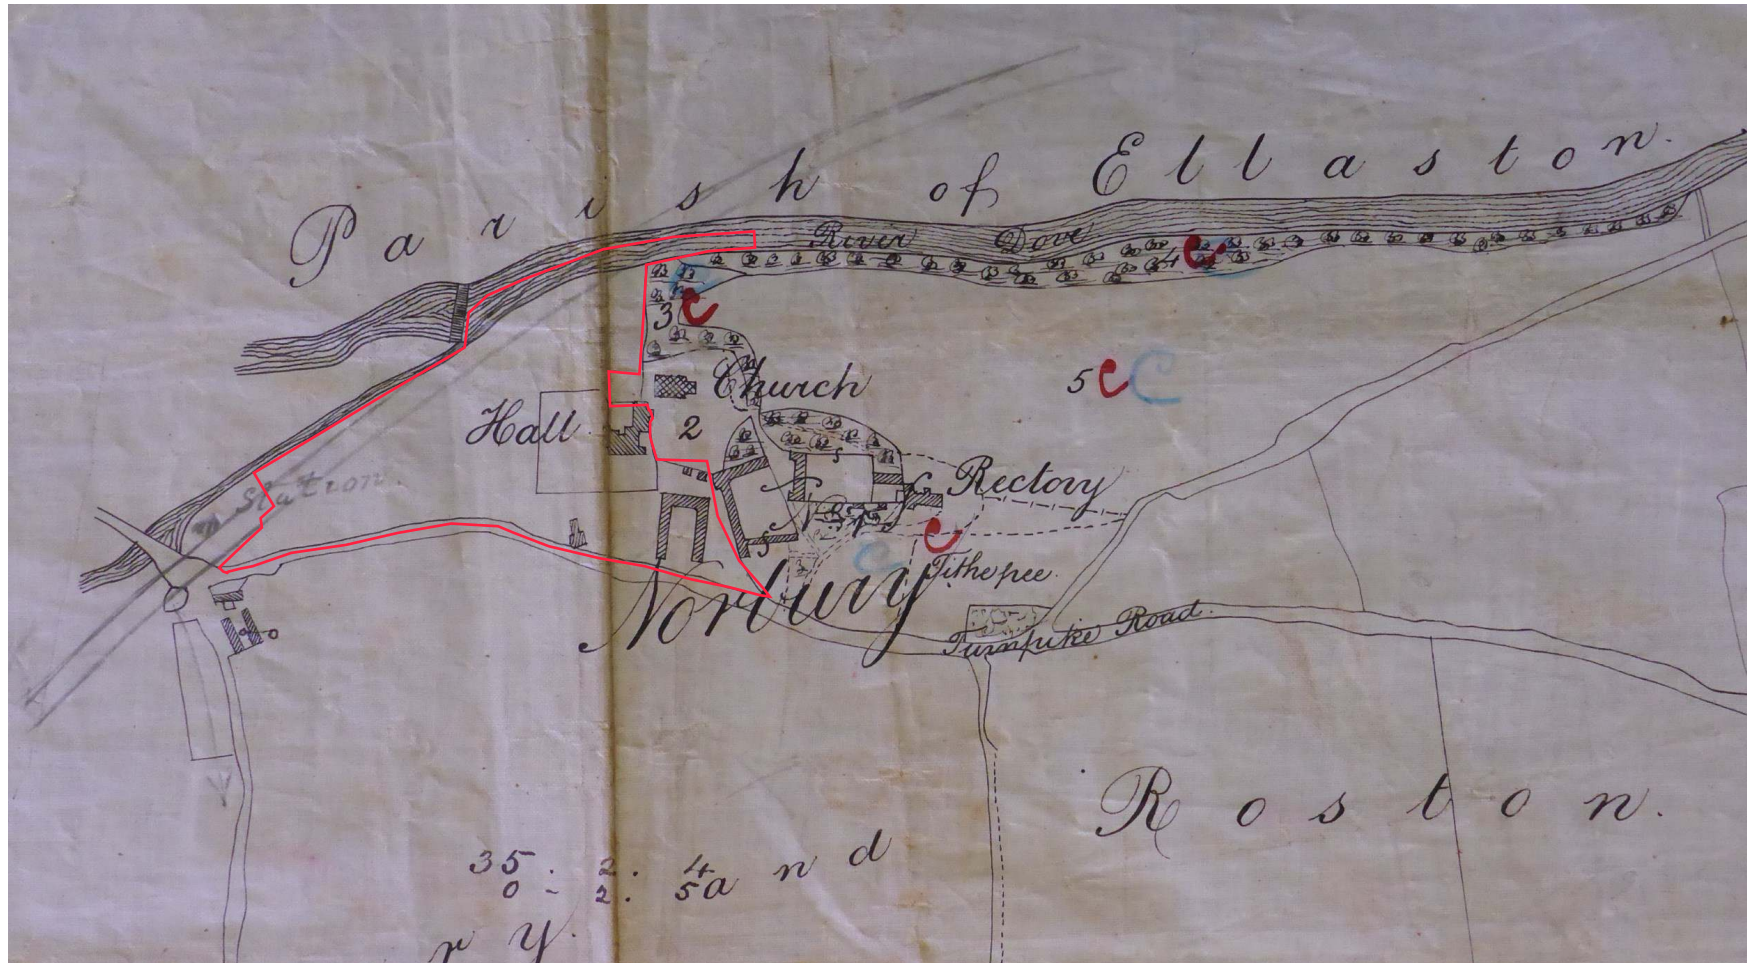 Parish of Ellaston.
River Dove
4 C
3 C
Church
5 C C
Hall
2
Station
Rectory
C
C
Tithe free.
Norbury
Turnpike Road.
Roston.
35 . 2 . 4
0 - 2 . 5
and
ry.